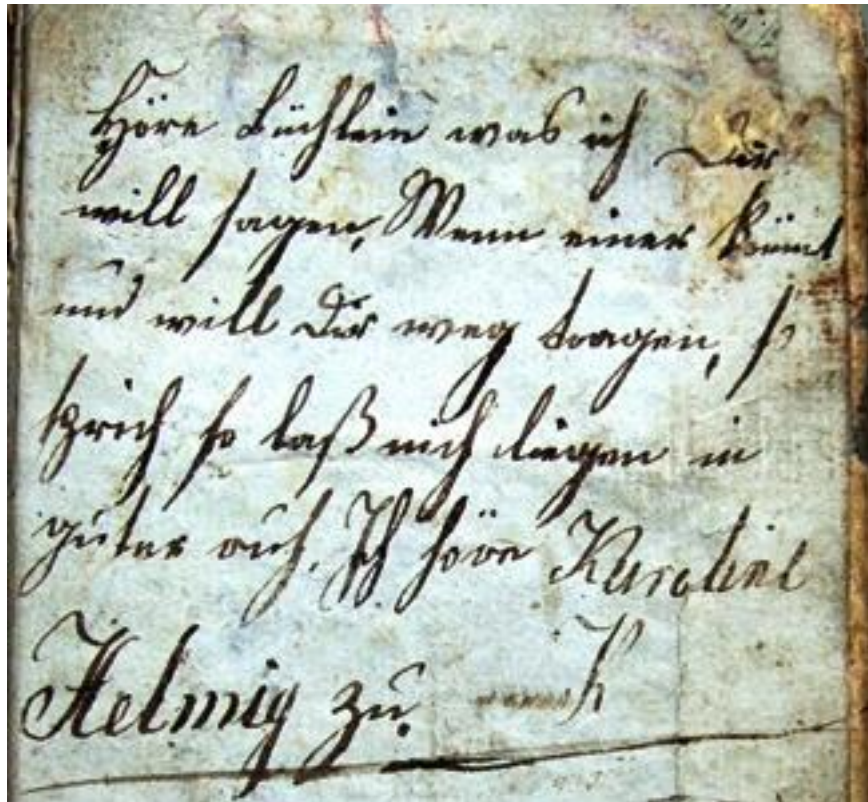 Höre Büchlein was ich Dir
will sagen, Wenn einer kömt
und will Dir weg tragen, so
sprich so laß mich liegen in
guter ruh, Ich höre Karoline
Helmig zu.